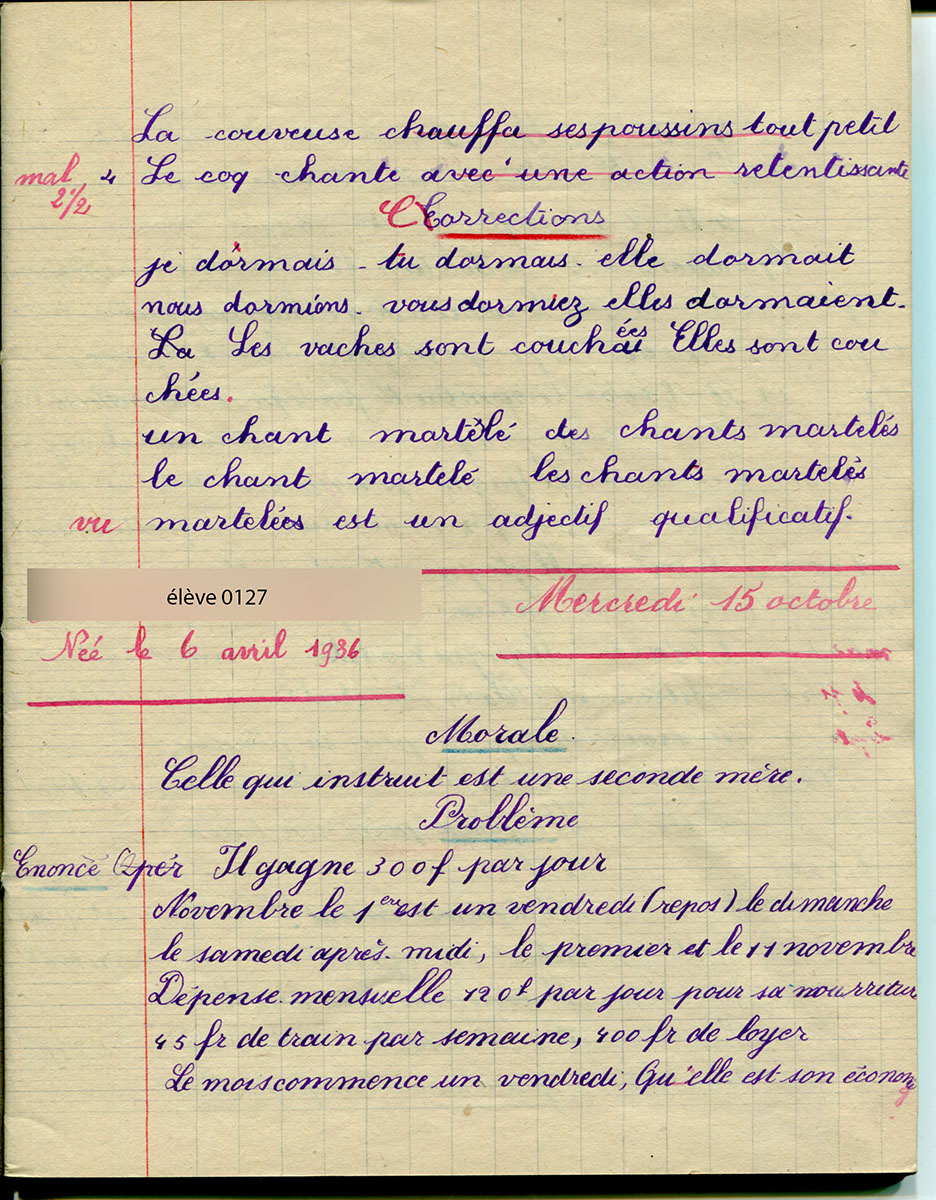 La couveuse chauffa ses poussins tout petit
mal 4 Le coq chante avec une action retentissante
2 1/2
Corrections
je dormais - tu dormais - elle dormait
nous dormions - vous dormiez elles dormaient.
La Les vaches sont couchées Elles sont cou
chées.
un chant martelé des chants martelés
le chant martelé les chants martelés
vu martelées est un adjectif qualificatif.
élève 0127
Mercredi 15 octobre
Née le 6 avril 1936
Morale.
Celle qui instruit est une seconde mère.
Problème
Enoncé Opér Il gagne 300f par jour
Novembre le 1er est un vendredi (repos) le dimanche
le samedi après-midi, le premier et le 11 novembre
Dépense mensuelle 120f par jour pour sa nourritur
45 fr de train par semaine, 400 fr de loyer
Le mois commence un vendredi, Qu'elle est son économ